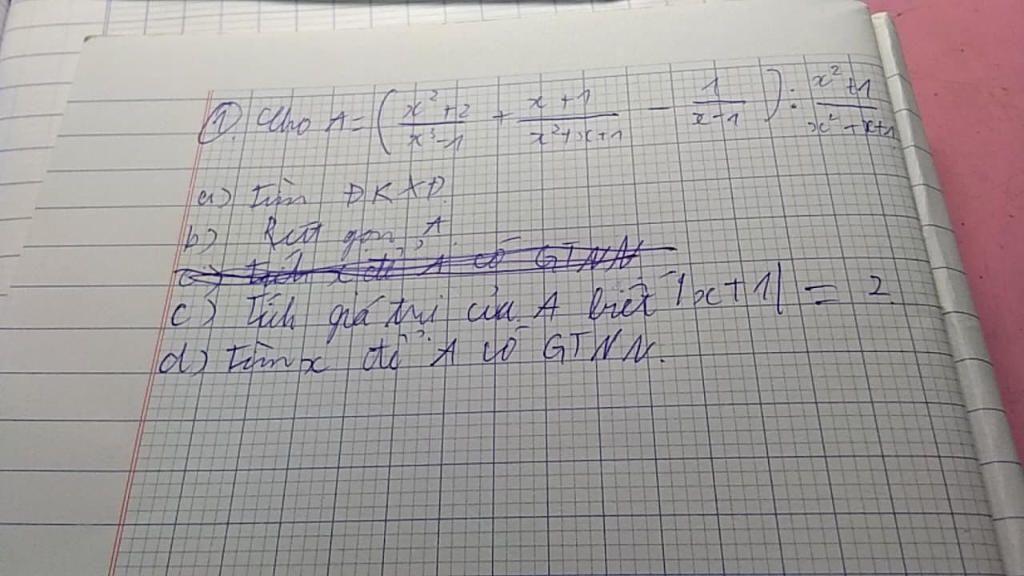 ①. Cho A = ( \frac{x²+2}{x³-1} + \frac{x+1}{x²+x+1} - \frac{1}{x-1} ) : \frac{x²+1}{x²+x+1}
a) Tìm ĐKXĐ.
b) Rút gọn A.
c) Tính giá trị của A biết |x+1| = 2
d) Tìm x để A có GTNN.